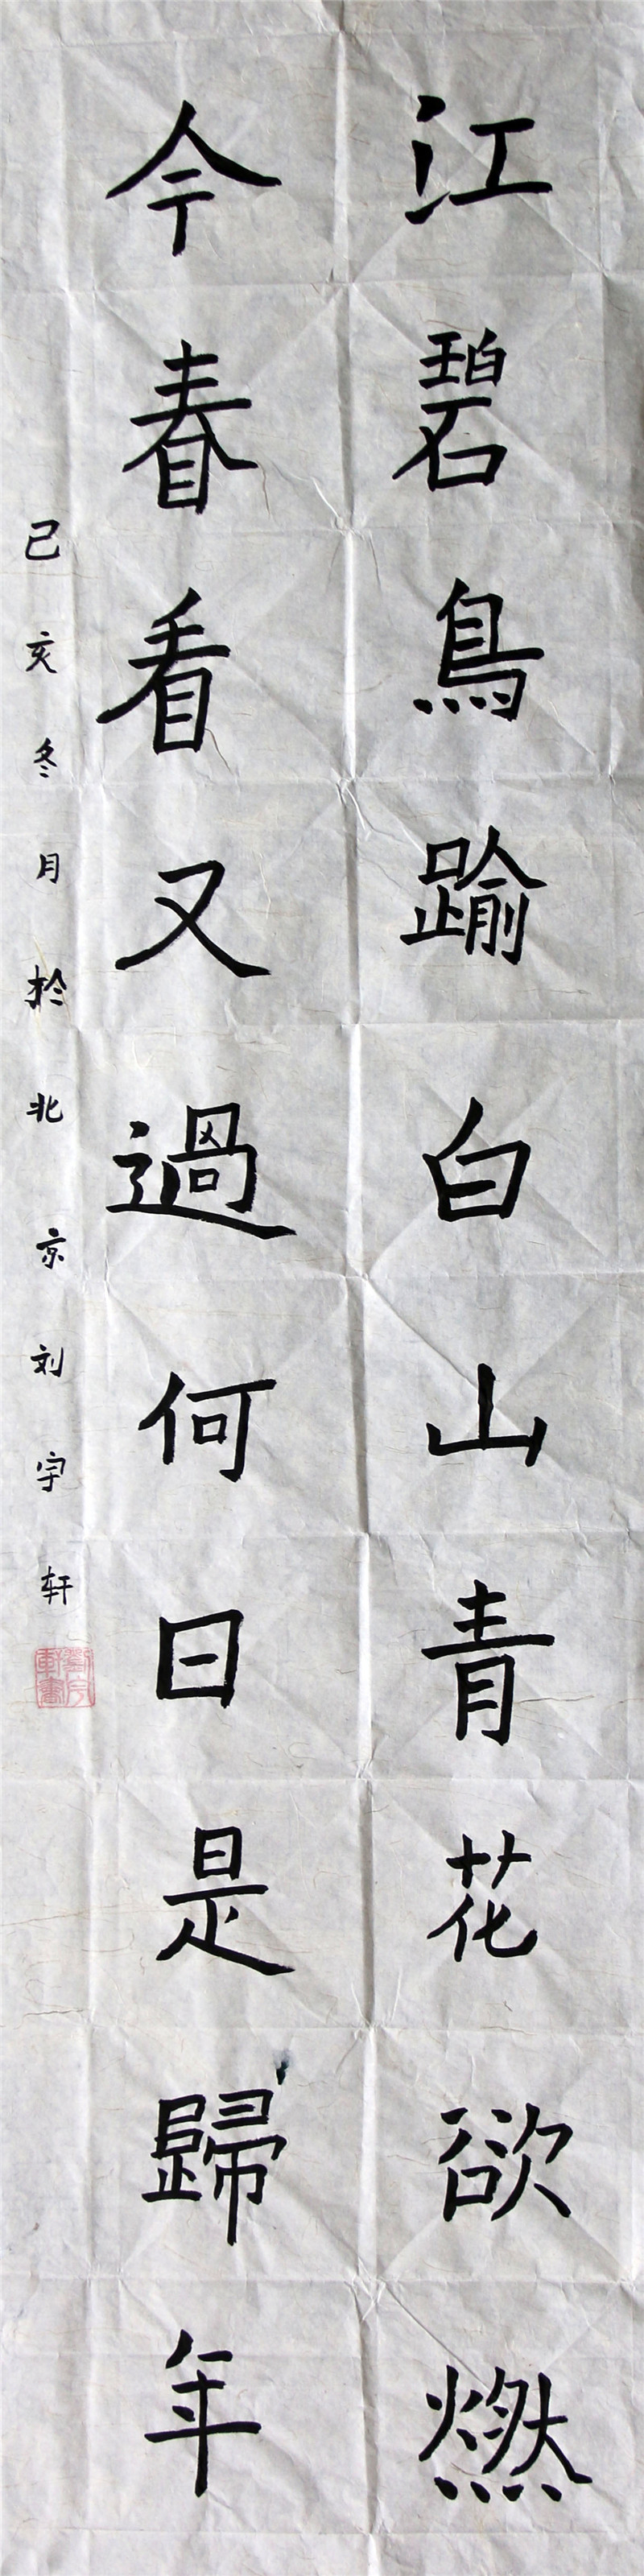 江碧鳥踰白山青花欲燃
今春看又過何日是歸年
己亥冬月於北京刘宇轩